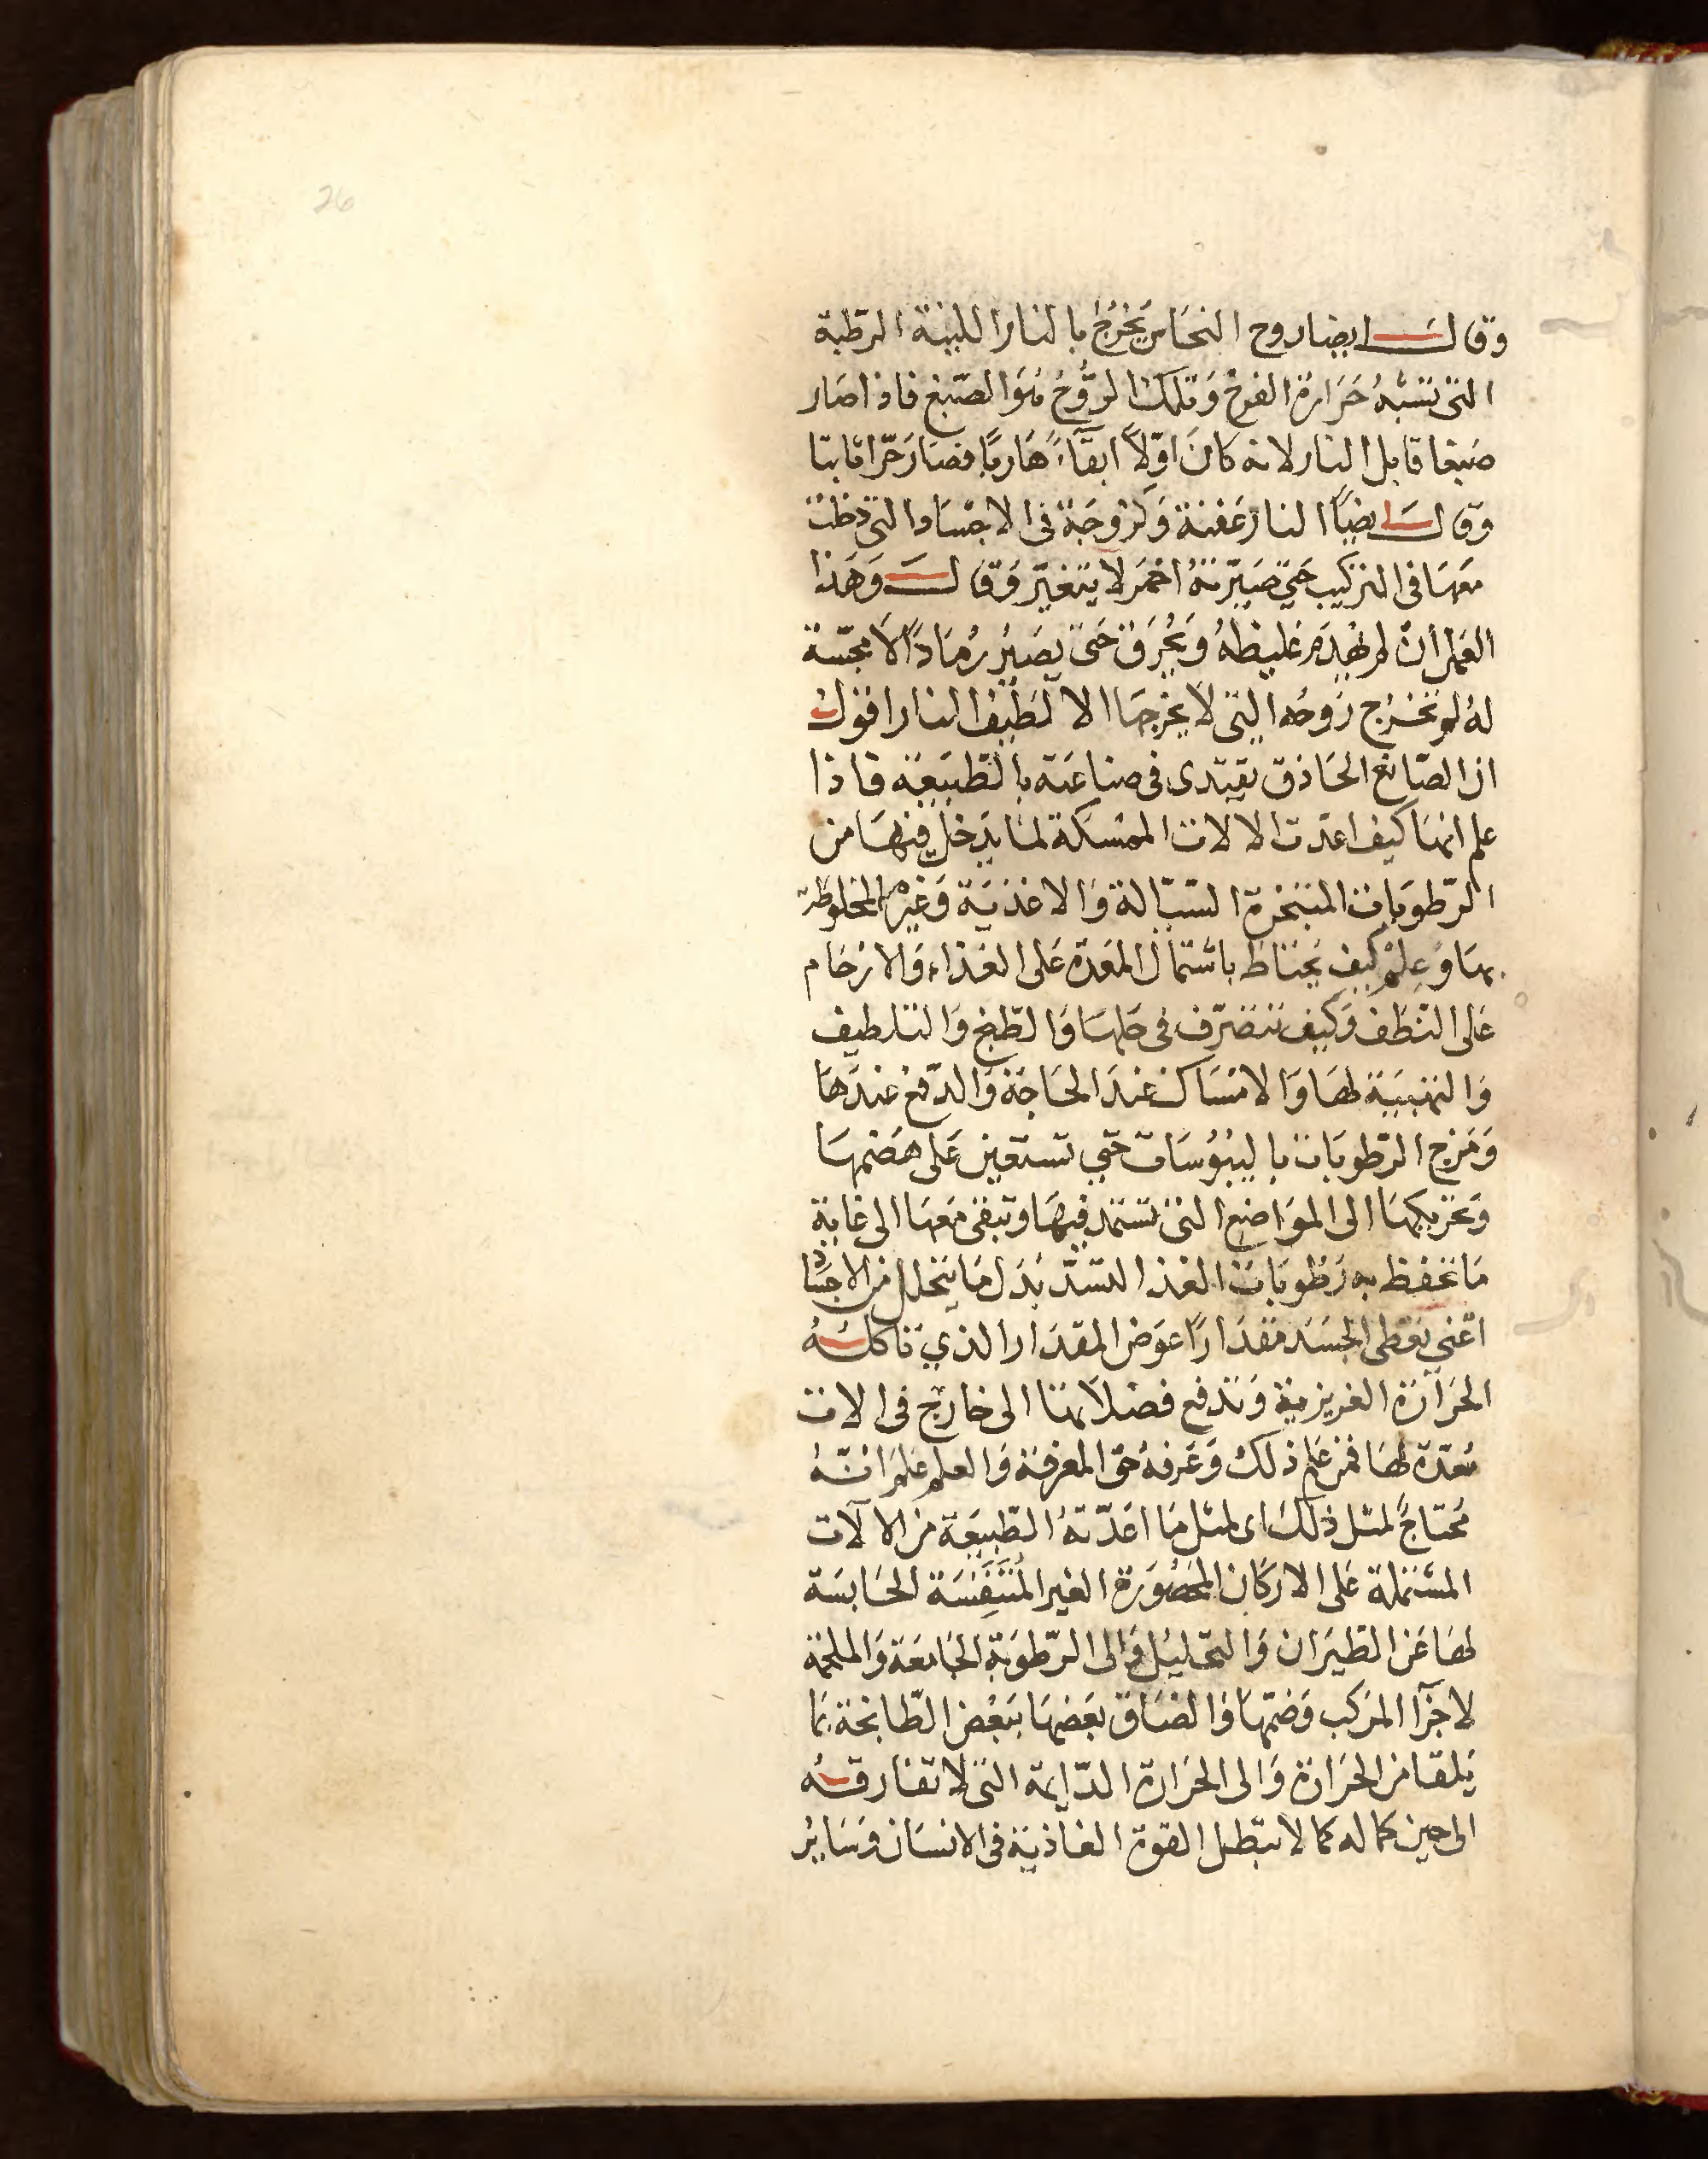 26
وقال ايضا روح النحاس يَخرُجُ بالنار اللينة الرطبة
التى تشبهُ حَرَارة الفرخ وَتلكَ الرُّوحُ هُوَ الصّبغ فاذا صَار
صَبغا قابل النار لانه كانَ اوّلاً ابقاءً هَاربًا فصَارَ حَرّا ثابتا
وقال ايضًا النار عَفنة وَلزوجَة فى الاجسَاد التى دخلت
مَعَهَا فى التركيب حَتى صَيّرتهُ احْمَر لا يتغيّر وَقال وَهَذا
العَمل ان لم يهْدَم غليظهُ وَيحْرَق حَتى يصَيُر رُمَادًا لا مجسّة
لهُ لم تخرُج رُوحُه التى لا يخرجهَا الا لَطيفُ النار اقول
ان الصّانع الحَاذق يقتدى فى صناعَته بالطّبيعَة فاذا
علم انهَا كيف اعَدّت الالات الممسكة لما يَدخل فيهَا من
الرّطوبَات المتبخرة السّيّالة وَالاغذيَة وَغيرهَا المخلوطة
بهَا وَعِلمَ كيفَ يَحتَاط باشتمال المعَدة عَلى الغذاء وَالارْحَام
عَلى النّطَف وَكيف تتصَرّف فى حَلهَا وَالطّبخ وَالتلطيف
وَالتهبيَة لهَا وَالامْسَاك عندَ الحَاجَة وَالدّفع عندَهَا
وَمَزج الرّطوبَات باليبُوسَات حَتى تستَعين عَلى هَضمهَا
وَتحريكهَا الى المَوَاضع التى تستمد فيهَا وَتبقى مَعَهَا الى غاية
مَا تحفظ به رَطوبَات الغذا لتسُدّ بَدَل مَا يَتحلل من الاجسَاد
اعْنى تعْطى الجسَد مقدَارًا عوَض المقدَار الذي تاكلهُ
الحَرَارَة الغريزية وَتدفع فضلاتها الى خَارج فى الات
مُعَدّة لهَا فمن عَلم ذلكَ وَعَرفهُ حَق المَعرفة وَالعلم عَلمَ انّهُ
مُحتَاجً لمثل ذلكَ اى لمثل مَا اعَدّتهُ الطّبيعَة من الآلات
المشتملة عَلى الاركان المحصُورَة الغير المُتَنَفِّسَة الحَابسَة
لهَا عَن الطّيَران وَالتحليل وَالى الرّطوبَة الجَامعَة وَالملحمة
لاجزآ المرَكب وَضمّهَا وَالصَاق بَعضهَا ببَعْض الطّابخة بمَا
يَلقا من الحَرَارة وَالى الحَرَارة الدّايمة التى لا تفارقهُ
الى حين كماله كما لا تبطل القوة الغاذيَة فى الانسَان وَسَايُر